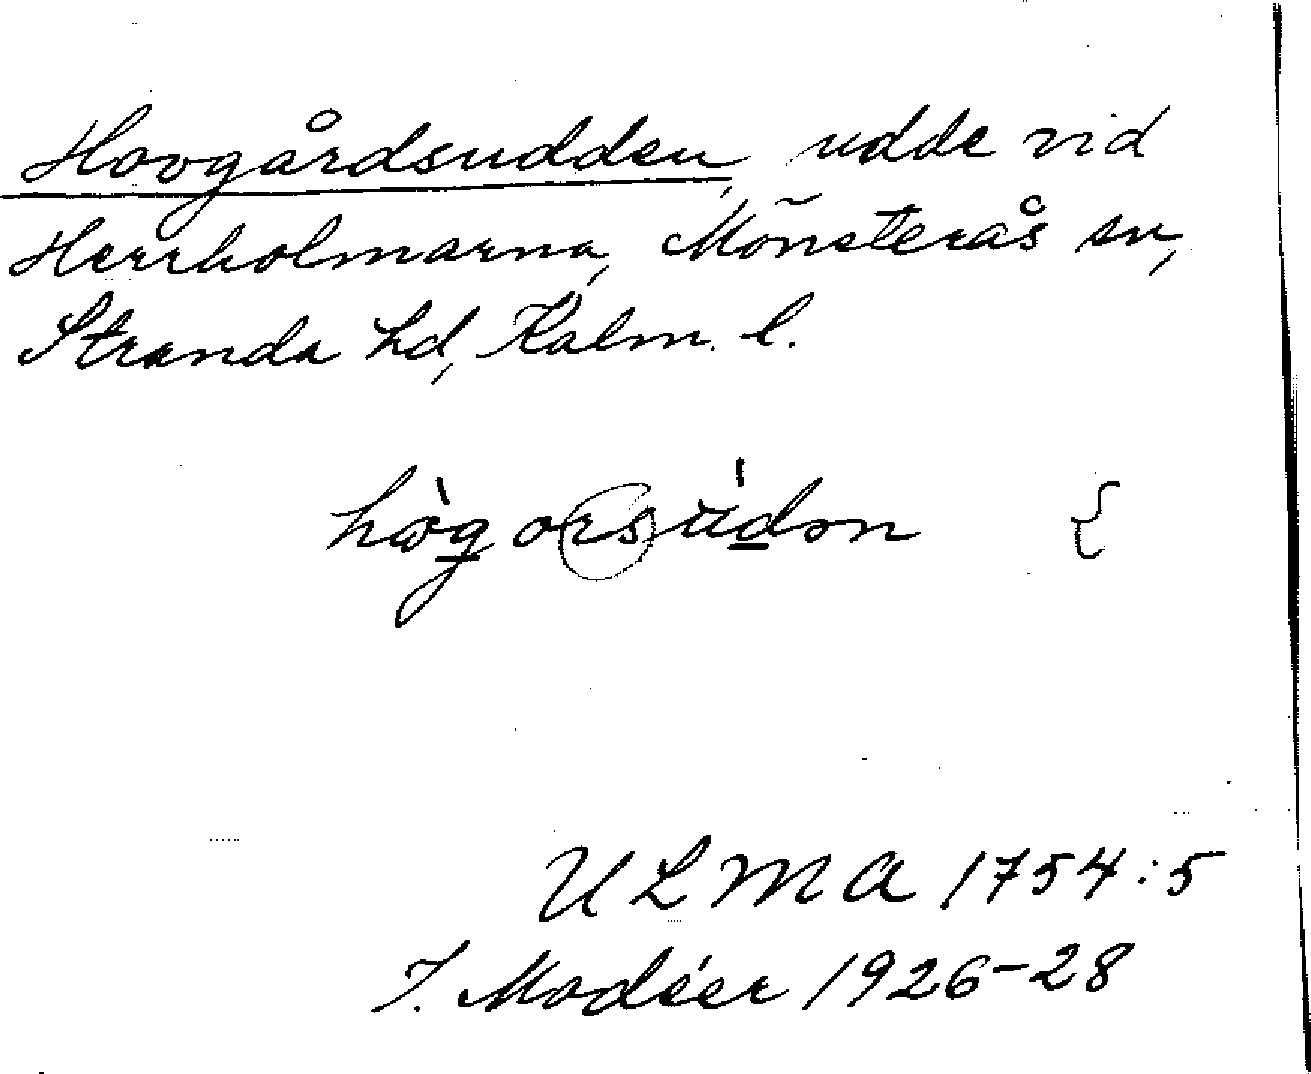 Hovgårdsudden, udde vid
Herrholmarna, Mönsterås sn,
Stranda hd, Kalm. l.
hògorsúdǝn {
ULMA 1754:5
I. Modéer 1926-28